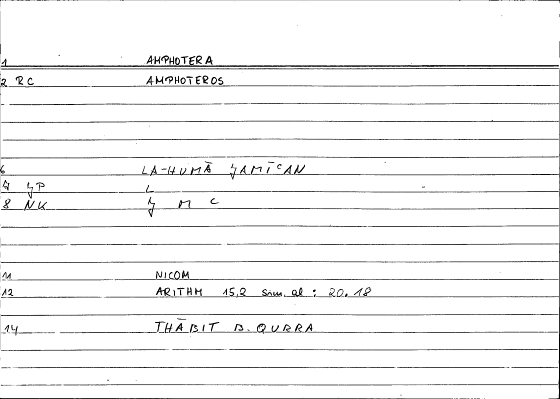 1 AMPHOTERA
2 RC AMPHOTEROS
6 LA-HUMĀ ǦAMĪCAN
7 ǦP L
8 NK Ǧ M C
11 NICOM
12 ARITHM 15,2 sim. al : 20.18
14 THĀBIT B. QURRA